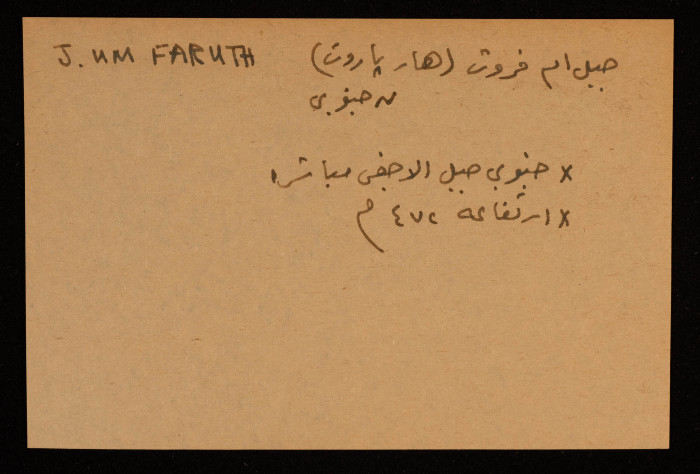 J. UM FARUTH جبل ام فروث (هار پاروت)
جنوبي
x جنوبي جبل الاجفى مباشرا
x ارتفاعه ٤٧٢ م